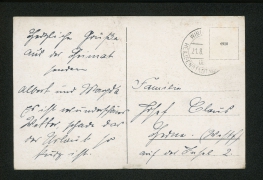 Herzliche Grüße
aus der Heimat
senden
Albert und
Es ist wunderschönes
Wetter, schade das
der Urlaub so
kurz ist.
Familien
Josef Claus
auf der Insel 2